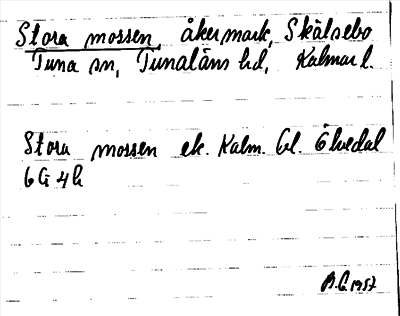 Stora mossen, åkermark, Skälsebo
Tuna sn, Tunaläns hd, Kalmar l.
Stora mossen ek. Kalm. bl. Ölvedal
6G 4h
1957